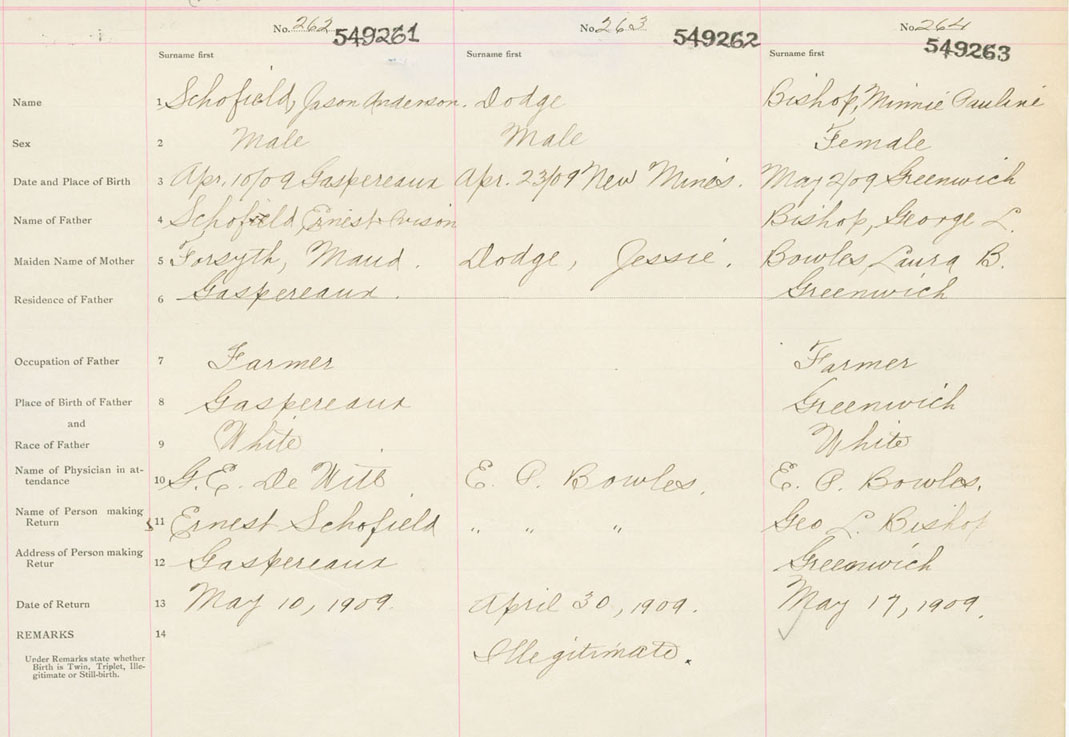 No. 262 549261 No. 263 549262 No. 264 549263
Surname first Surname first Surname first
Name 1 Schofield, Jason Anderson. Dodge Bishop, Minnie Pauline
Sex 2 Male Male Female
Date and Place of Birth 3 Apr. 10/09 Gaspereaux Apr. 23/09 New Minès. May 2/09 Greenwich
Name of Father 4 Schofield, Ernest Bishop, George L.
Maiden Name of Mother 5 Forsyth, Maud. Dodge, Jessie. Bowles, Laura B.
Residence of Father 6 Gaspereaux. Greenwich
Occupation of Father 7 Farmer Farmer
Place of Birth of Father 8 Gaspereaux Greenwich
and
Race of Father 9 White White
Name of Physician in at-
tendance 10 G. E. De Witt E. P. Bowles. E. P. Bowles.
Name of Person making
Return 11 Ernest Schofield " " " Geo L. Bishop
Address of Person making
Retur 12 Gaspereaux Greenwich
Date of Return 13 May 10, 1909. April 30, 1909. May 17, 1909.
REMARKS 14
Illegitimate.
Under Remarks state whether
Birth is Twin, Triplet, Ille-
gitimate or Still-birth.